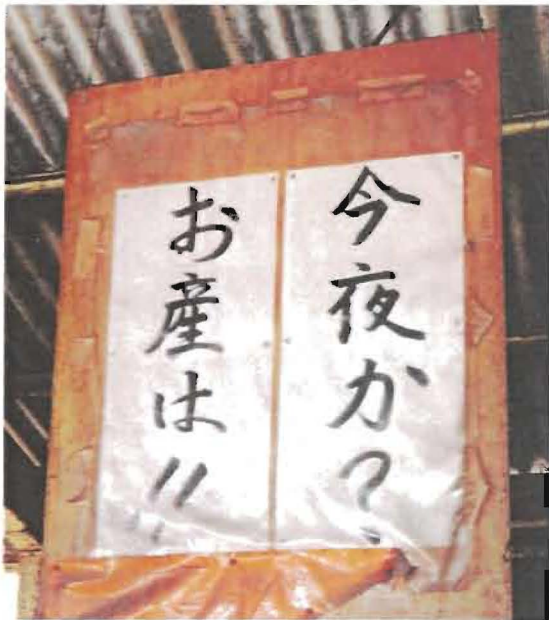 今夜か?
お産は!!